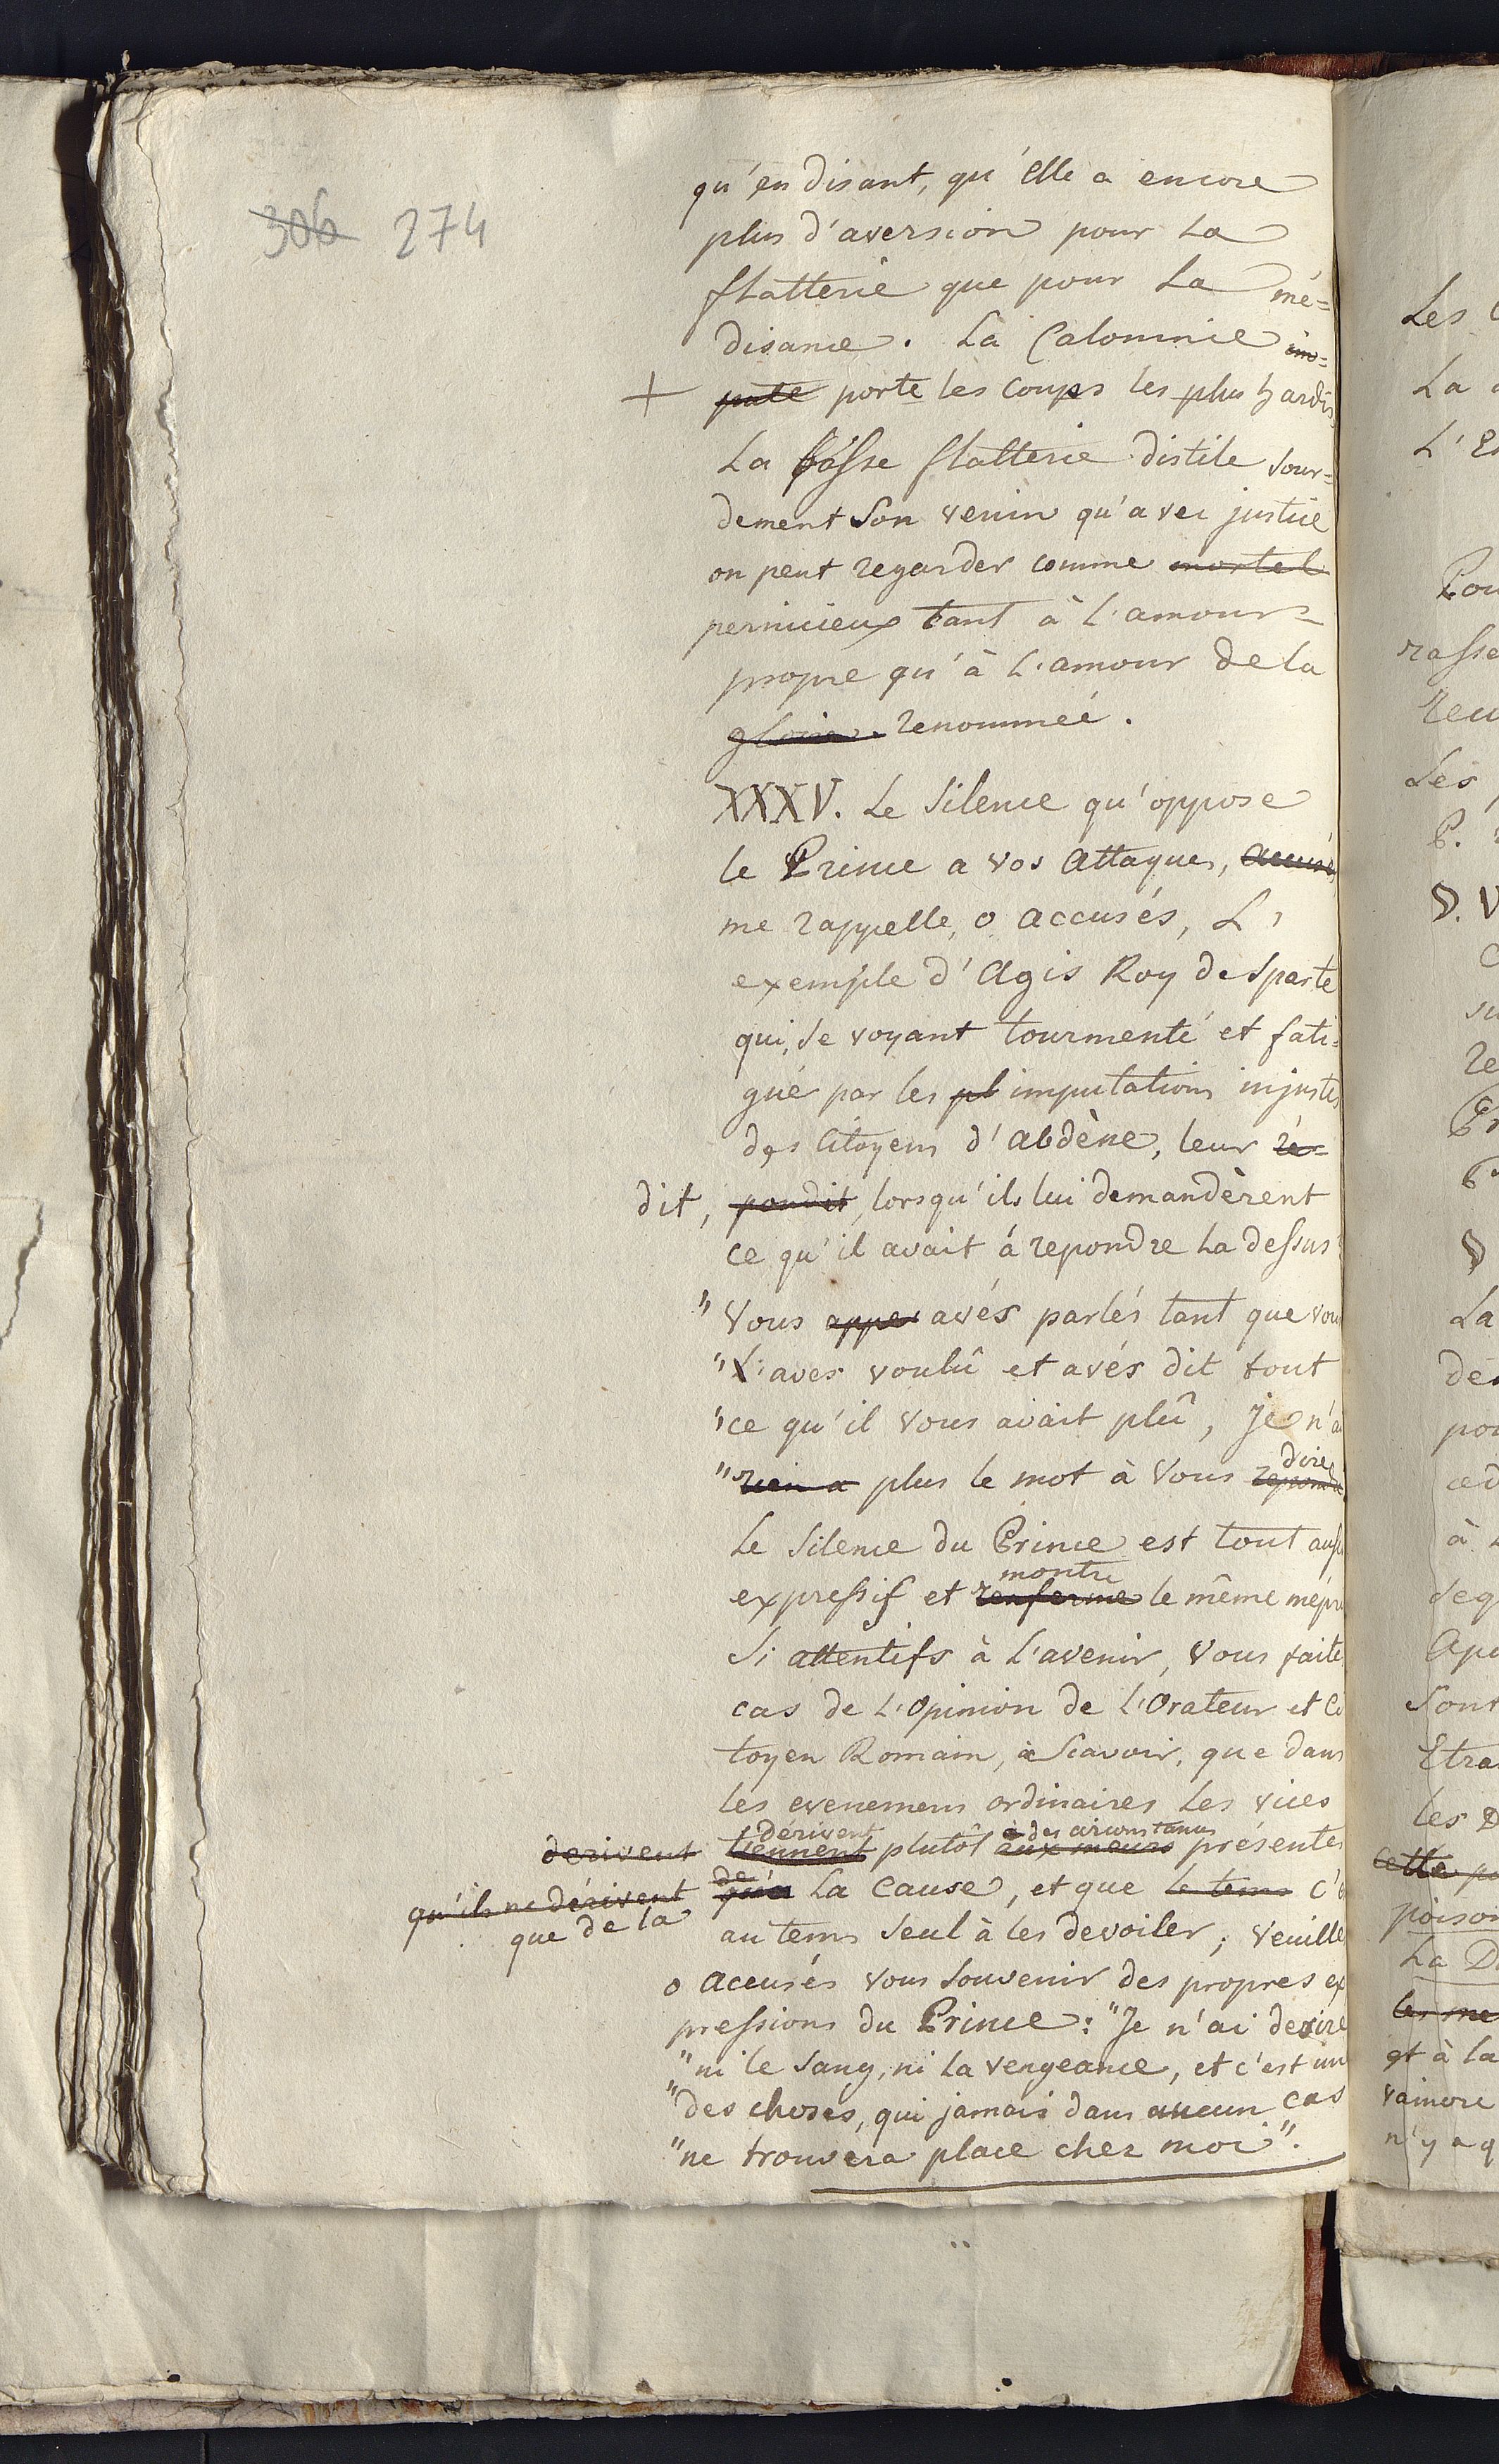 306 274
qu'en disant, qu'elle a encore
plus d'aversion pour La
flatterie que pour La mé=
disance. La Calomnie im=
+ pute porte les coups les plus hardis
La basse flatterie distile sour=
dement Son venin qu'avec justice
on peut regarder comme mortel
pernicieux tant à L'amour=
propre qu'à L'amour de la
gloire. renommée.
XXXV. Le Silence qu'oppose
le Prince a vos attaques, accusés
me rappelle, o accusés, L'
exemple d'Agis Roy de Sparte
qui, se voyant tourmenté et fati=
gué par les pl imputations injustes
des Citoyens d'Abdène, leur ré=
dit, pondit, lorsqu'ils lui demandèrent
ce qu'il avait à repondre La dessus
" Vous appe avés parlés tant que vous
" L'aves voulû et avés dit tout
" ce qu'il vous avait plû, Je n'ai
dire
" rien a plus le mot à Vous repondre
Le Silence du Prince est tout aussi
montre
expressif et renferme le même mépris
Si attentifs à L'avenir, Vous faites
cas de L'Opinion de L'Orateur et Ci
toyen Romain, à Scavoir, que dans
les evenemens ordinaires Les vices
dérivent à des circonstances
derivent tiennent plutôt aux meurs présentes
de
qu'ils ne dérivent qu'à La Cause, et que le tems c'est
que de la
au tems Seul à les devoiler; Veuillés
o accusés vous Souvenir des propres ex
pressions du Prince: "Je n'ai desiré
" ni le Sang, ni La vengeance, et c'est un
" des choses, qui jamais dans aucun cas
" ne trouvera place chez moi".
Les
La
L'E
rasse
Les
La
à
Sont
les D
poison
La D
et à la
vaincre
n'y a q